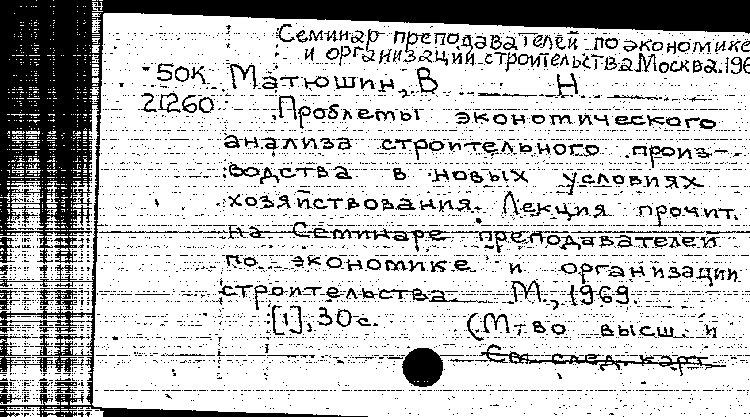 Семинар преподавателей по экономике
и организации строительства. Москва. 196
50К Матюшин, В Н
21260 Проблемы экономического
анализа строительного произ-
водства в новых условиях
хозяйствования. Лекция прочит.
на Семинаре преподавателей
по экономике и организации
строительства. М., 1969.
[1], 30 с. (М-во высш. и
См. след. карт.